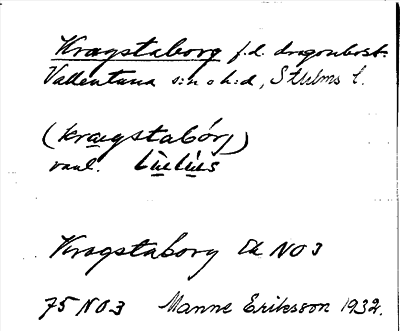 Kragstaborg f.d. dragonbost.
Vallentuna sn o hd, Sthlms l.
(kragstabórj)
vanl.
Kragstaborg Ek NO3
75 NO3 Manne Eriksson 1932.